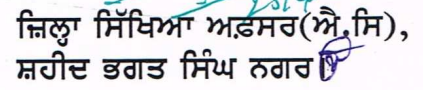 ਜ਼ਿਲ੍ਹਾ ਸਿੱਖਿਆ ਅਫ਼ਸਰ(ਐ.ਸਿ),
ਸ਼ਹੀਦ ਭਗਤ ਸਿੰਘ ਨਗਰ।